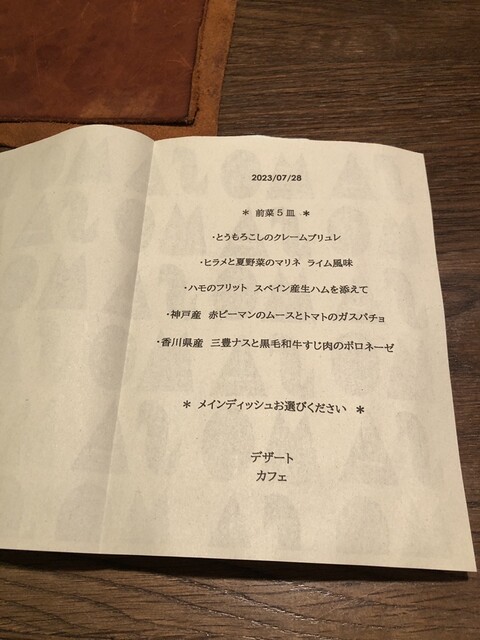 2023/07/28
＊ 前菜５皿 ＊
・とうもろこしのクレームブリュレ
・ヒラメと夏野菜のマリネ ライム風味
・ハモのフリット スペイン産生ハムを添えて
・神戸産 赤ピーマンのムースとトマトのガスパチョ
・香川県産 三豊ナスと黒毛和牛すじ肉のボロネーゼ
＊ メインディッシュお選びください ＊
デザート
カフェ